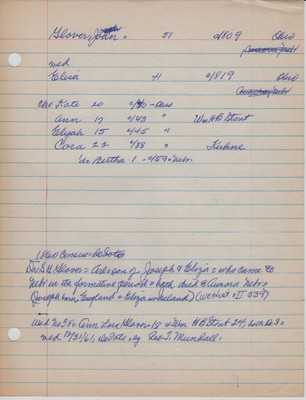 Glover, John 51 c/1809 Ohio
Aurora, Nebr
wed
Eliza 41 c/1819 Ohio
Aurora, Nebr
Ch: Kate 20 c/40 - Ohio
Ann 17 c/43 " Wm H B Stout
Elijah 15 c/45 "
Cora 22 c/38 " Kuhne
da Bertha 1 c/59 Nebr.
1860 Census - DeSoto
Glover = a son of Joseph & Eliza = who came to
Nebr in the formative period = both died @ Aurora Nebr =
(Joseph born England = Eliza in Ireland) II 539)
Wed No 38 = Ann Glover 18 & Wm H B Stout 24, both De S =
wed 10/31/61, DeSoto, by Geo. I. Munhall.